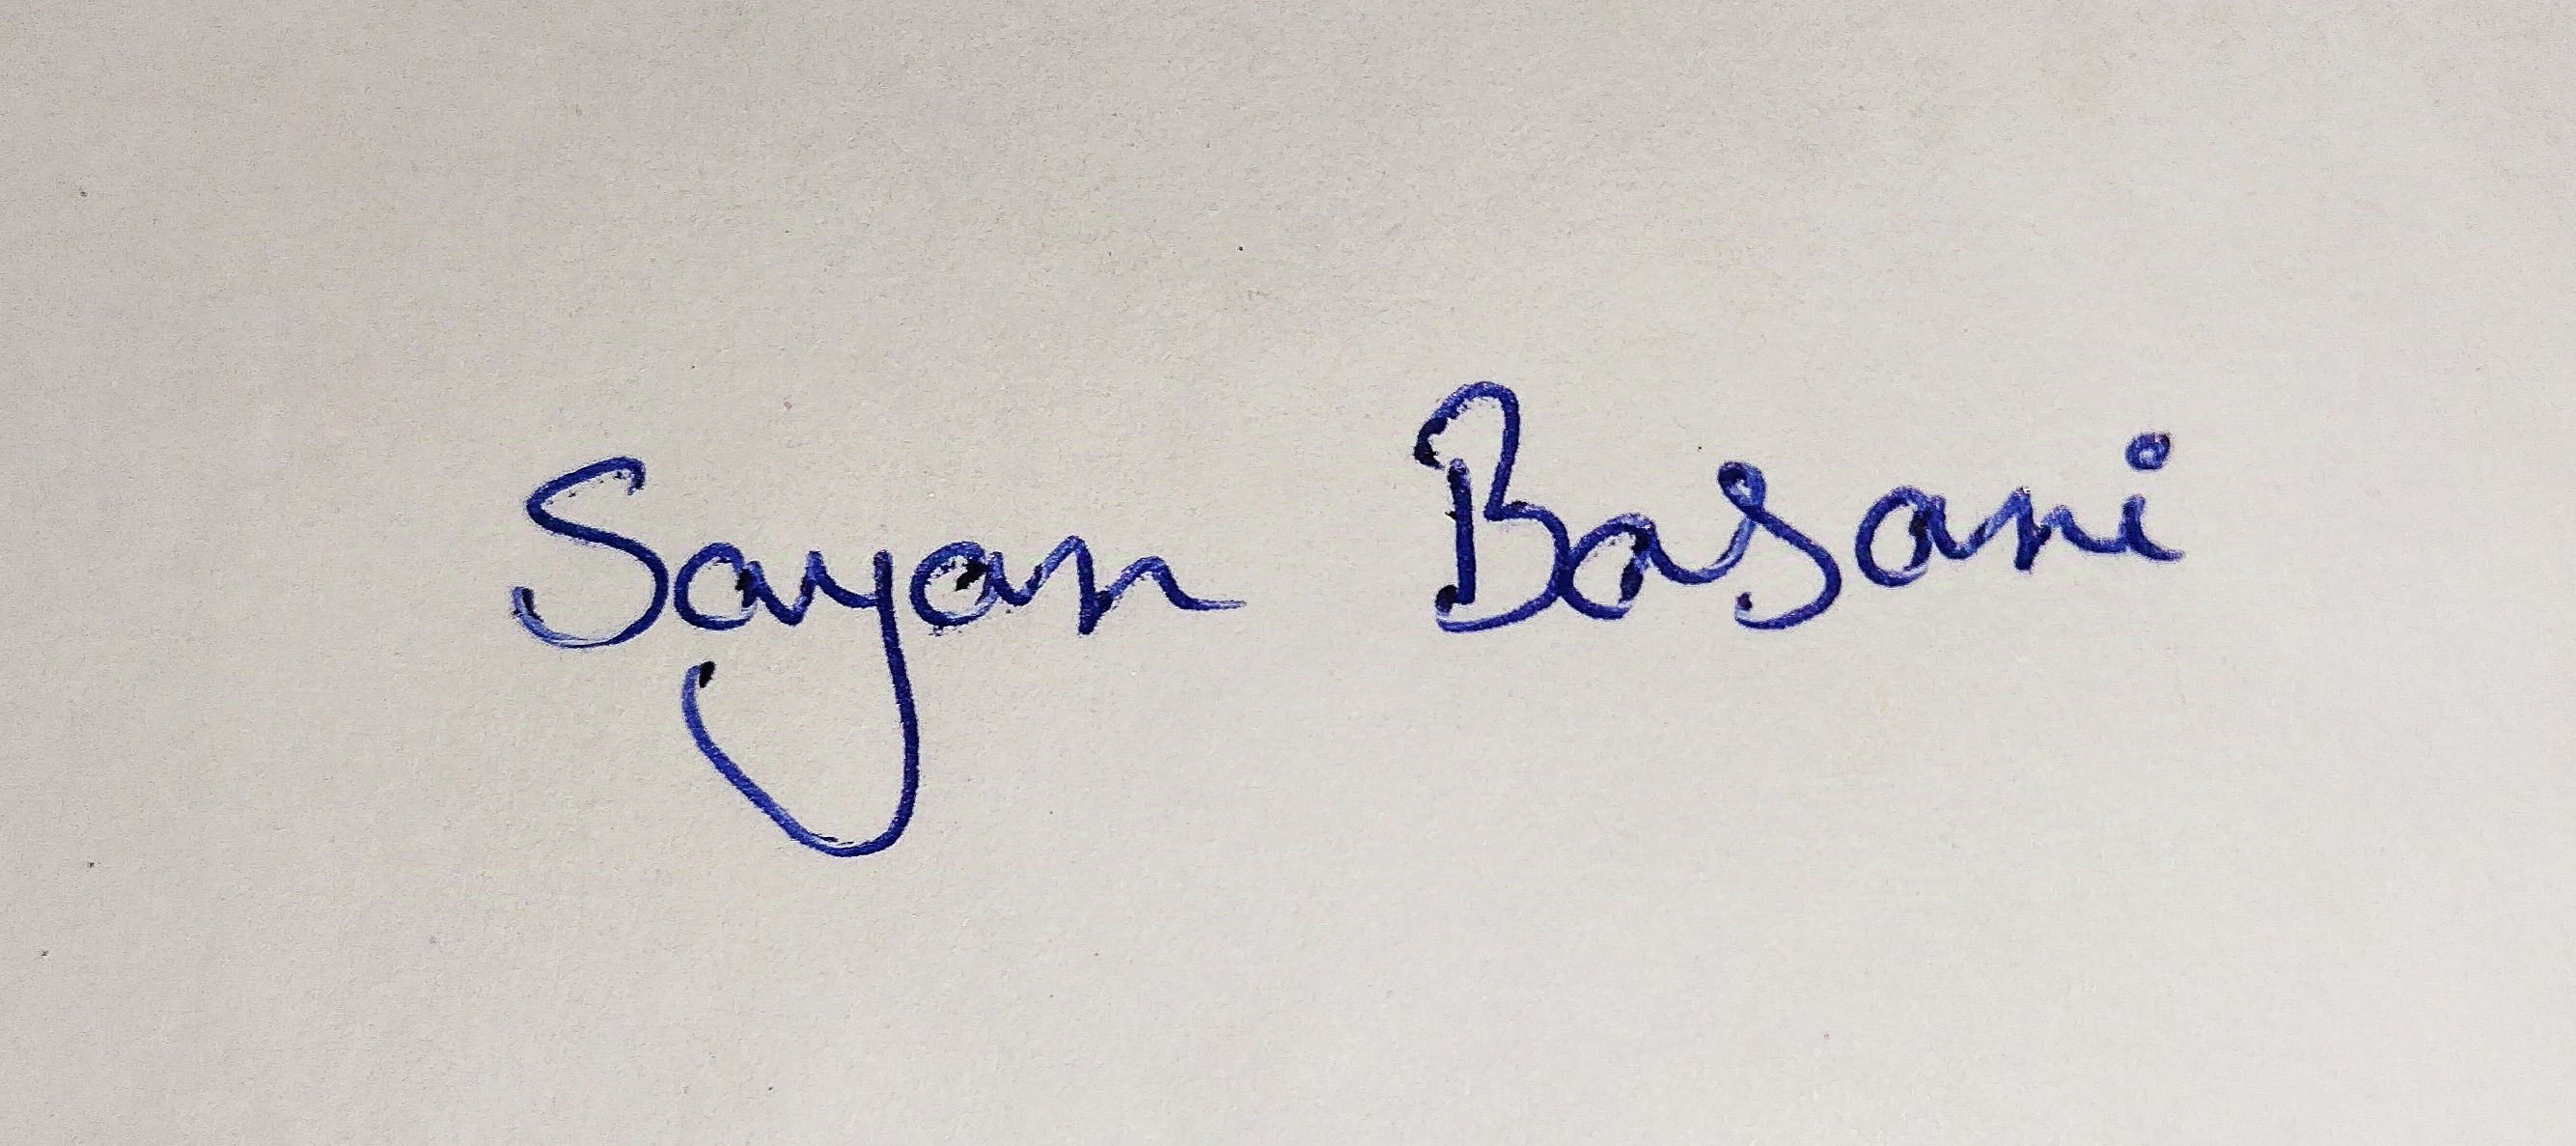 Sayan Basani